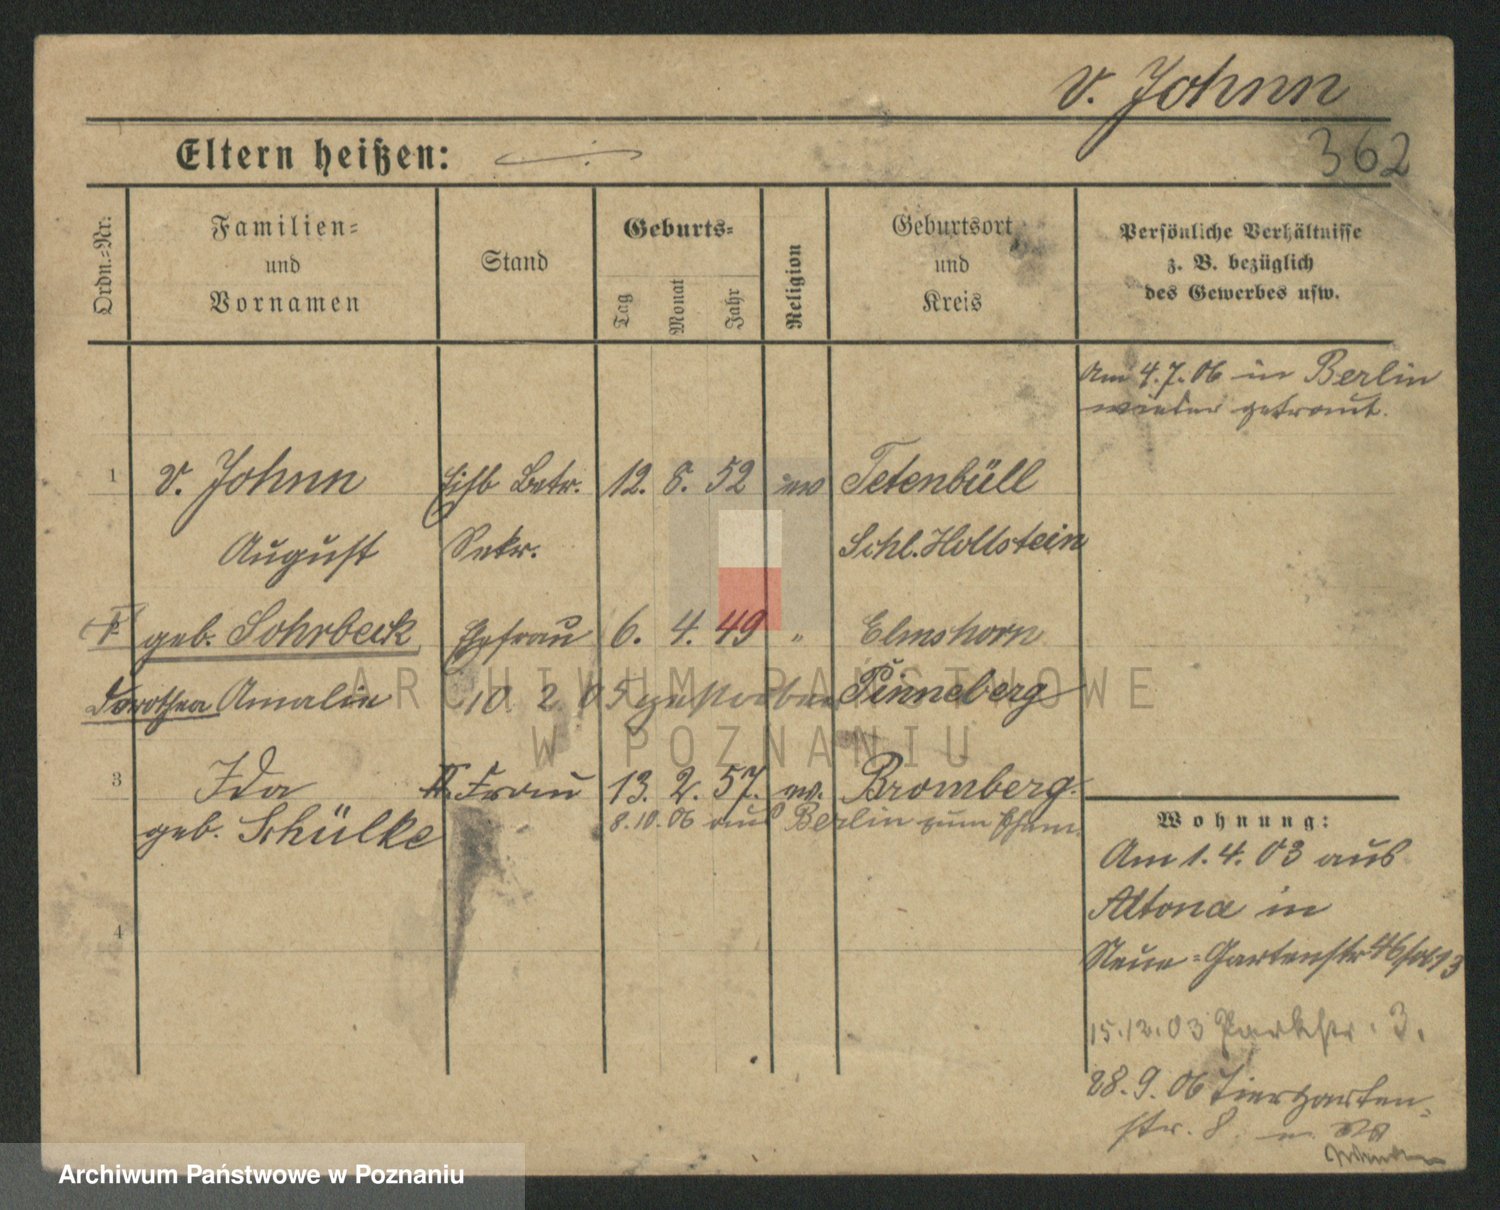 v. Johnn
362
Eltern heißen:
Ordn.=Nr.
Familien=
und
Vornamen
Stand
Geburts=
Tag
Monat
Jahr
Religion
Geburtsort
und
Kreis
Persönliche Verhältnisse
z. B. bezüglich
des Gewerbes usw.
Am 4.7.06 in Berlin
wieder getraut.
1 v. Johnn Eisb Betr. 12. 8. 52 ev Tetenbüll
August Sekr. Schl. Hollstein
geb. Sohrbeck Ehefrau 6. 4. 49 " Elmshorn
Dorothea Amalie 10. 2. 05 gestorben Pinneberg
3 Ida II. Frau 13. 2. 57. ev. Bromberg.
geb. Schülke 8.10.06 aus Berlin zum Ehem.
4
Wohnung:
Am 1. 4. 03 aus
Altona in
Neue=Gartenstr 46
15.12.03 Parkstr. 3.
28.9.06 Tiergarten=
str. 8.
ARCHIWUM PAŃSTWOWE
W POZNANIU
Archiwum Państwowe w Poznaniu